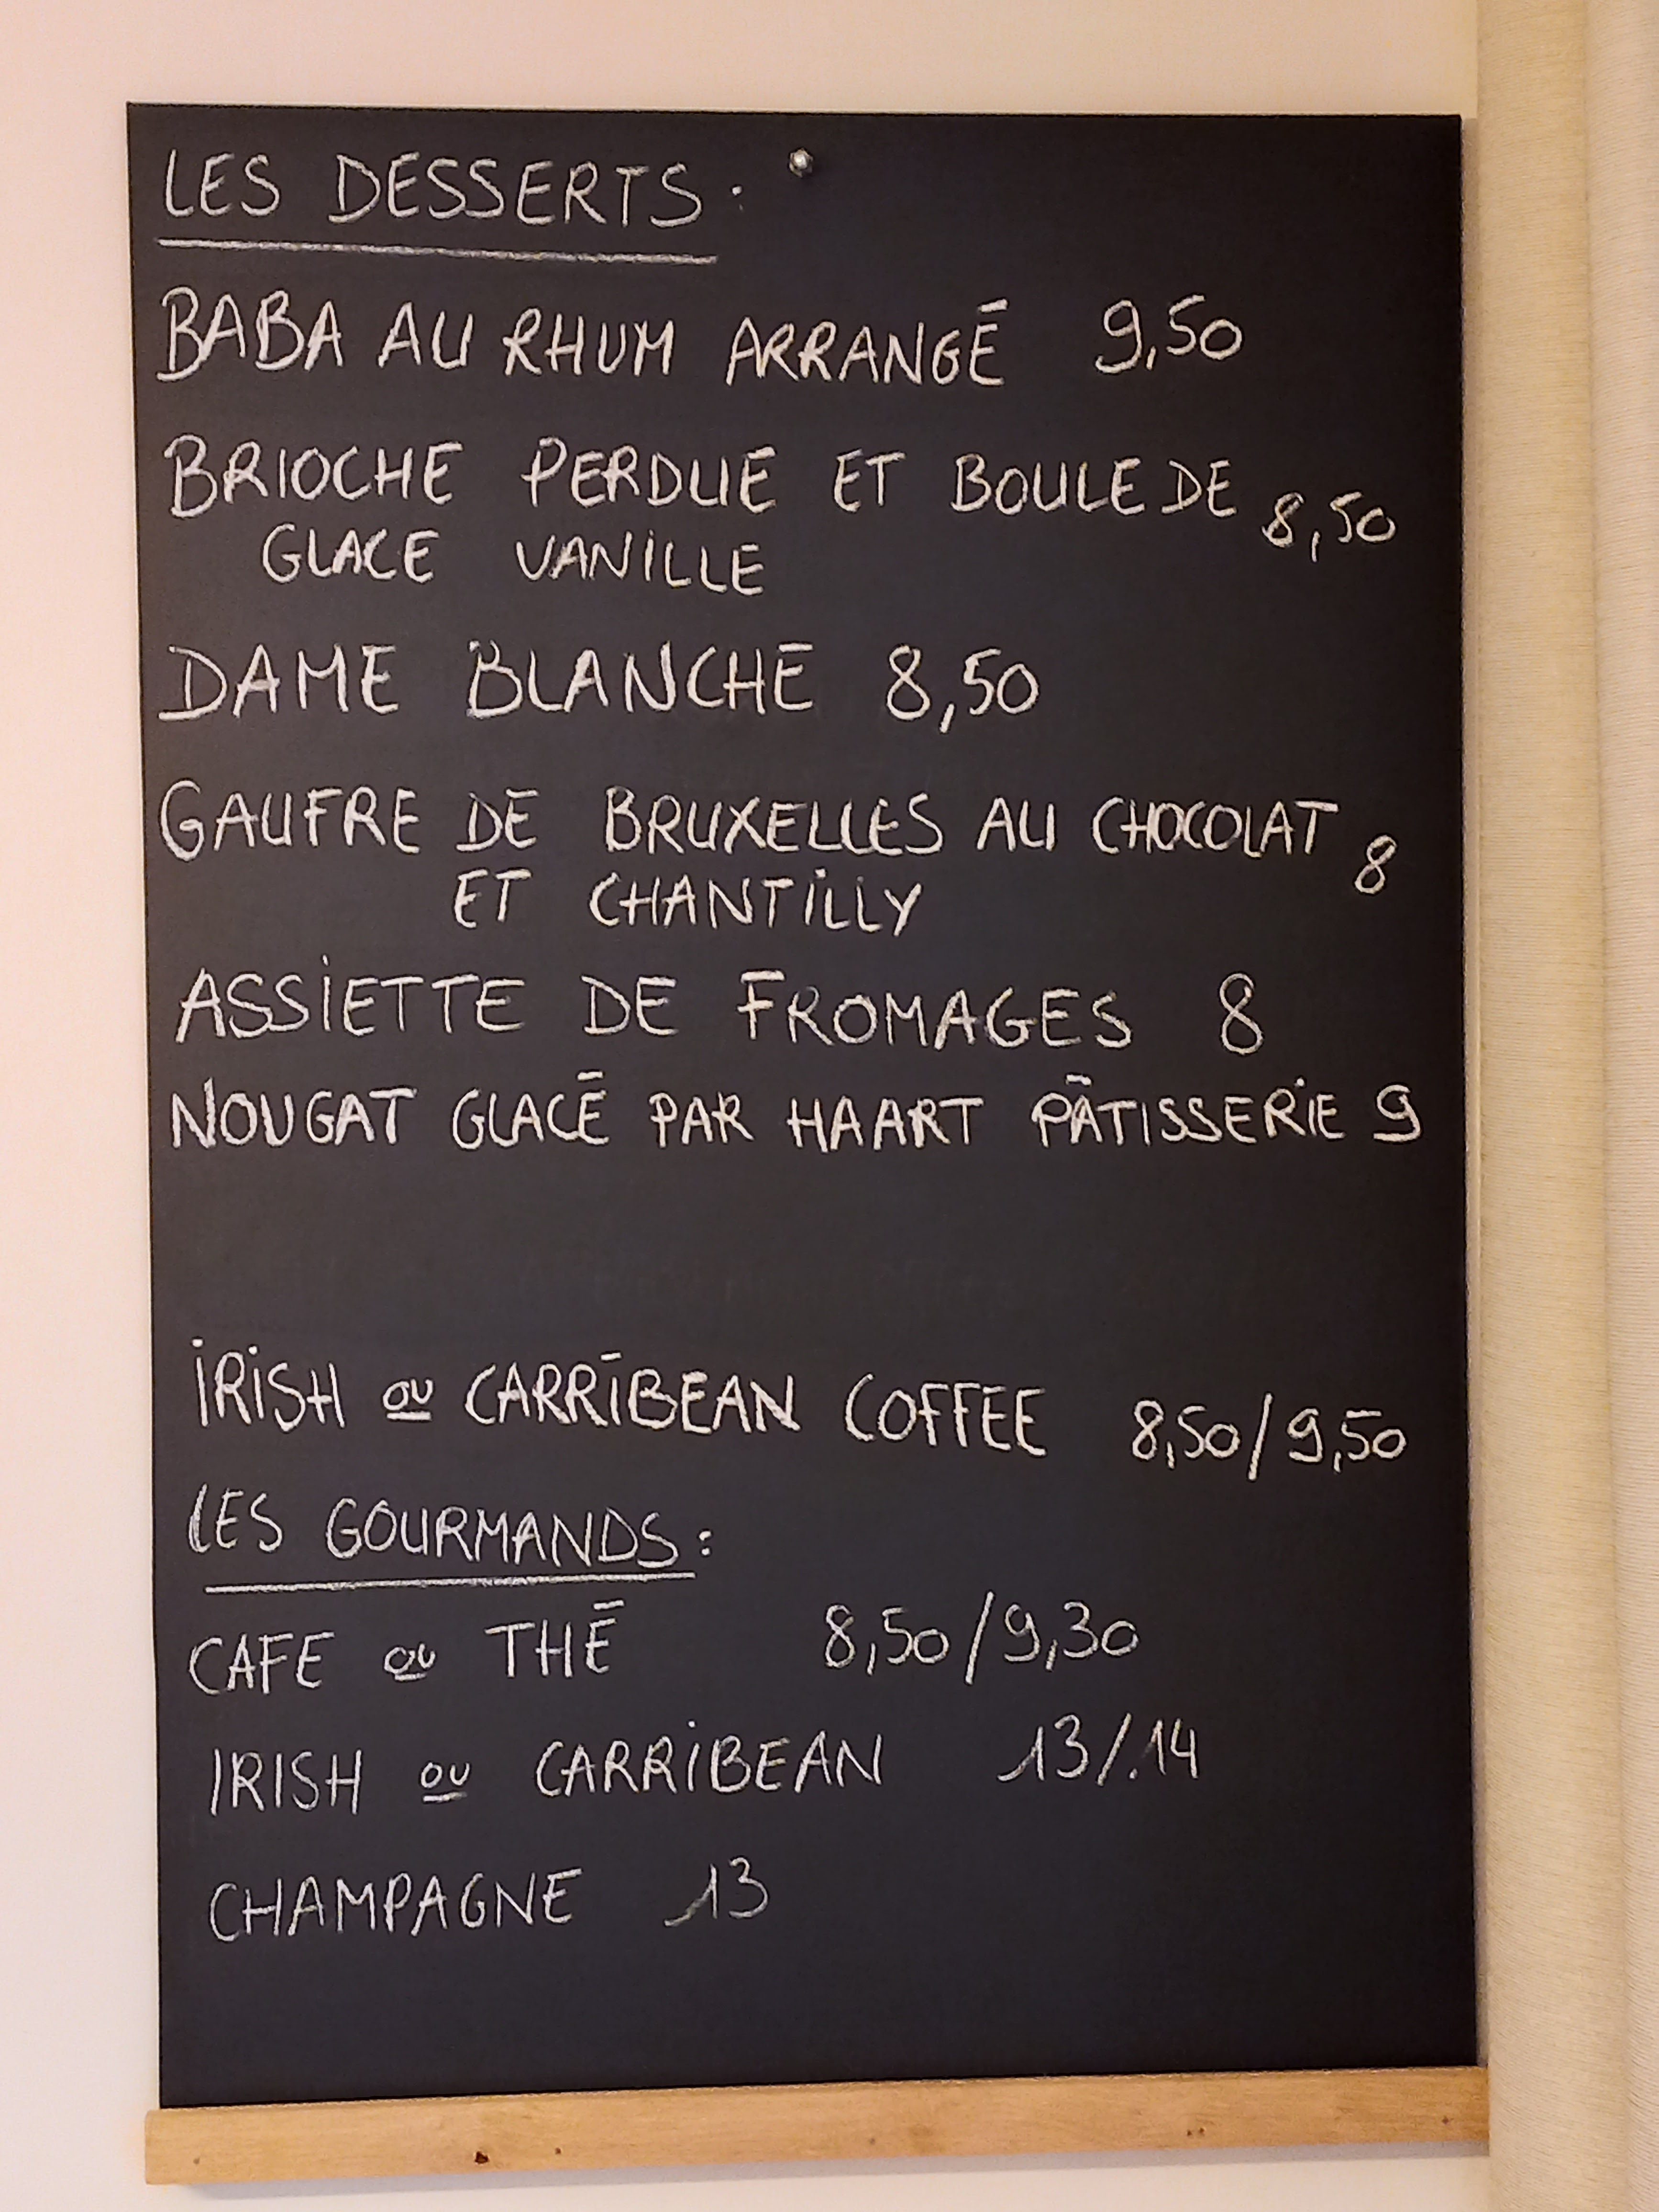 LES DESSERTS :
BABA AU RHUM ARRANGÉ 9,50
BRIOCHE PERDUE ET BOULE DE 8,50
GLACE VANILLE
DAME BLANCHE 8,50
GAUFRE DE BRUXELLES AU CHOCOLAT 8
ET CHANTILLY
ASSIETTE DE FROMAGES 8
NOUGAT GLACÉ PAR HAART PÂTISSERIE 9
IRISH ou CARRIBEAN COFFEE 8,50/9,50
LES GOURMANDS :
CAFE ou THÉ 8,50/9,30
IRISH ou CARRIBEAN 13/.14
CHAMPAGNE 13